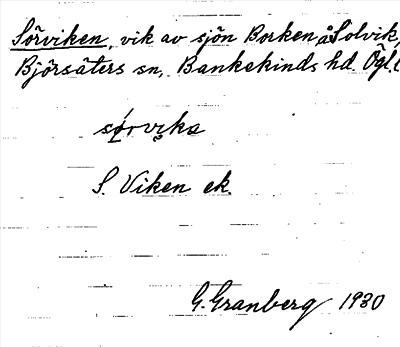 Sörviken, vik av sjön Borken å Solvik,
Björsäters sn, Bankekinds hd. Ögl.
sørvika
S. Viken ek.
G. Granberg 1930